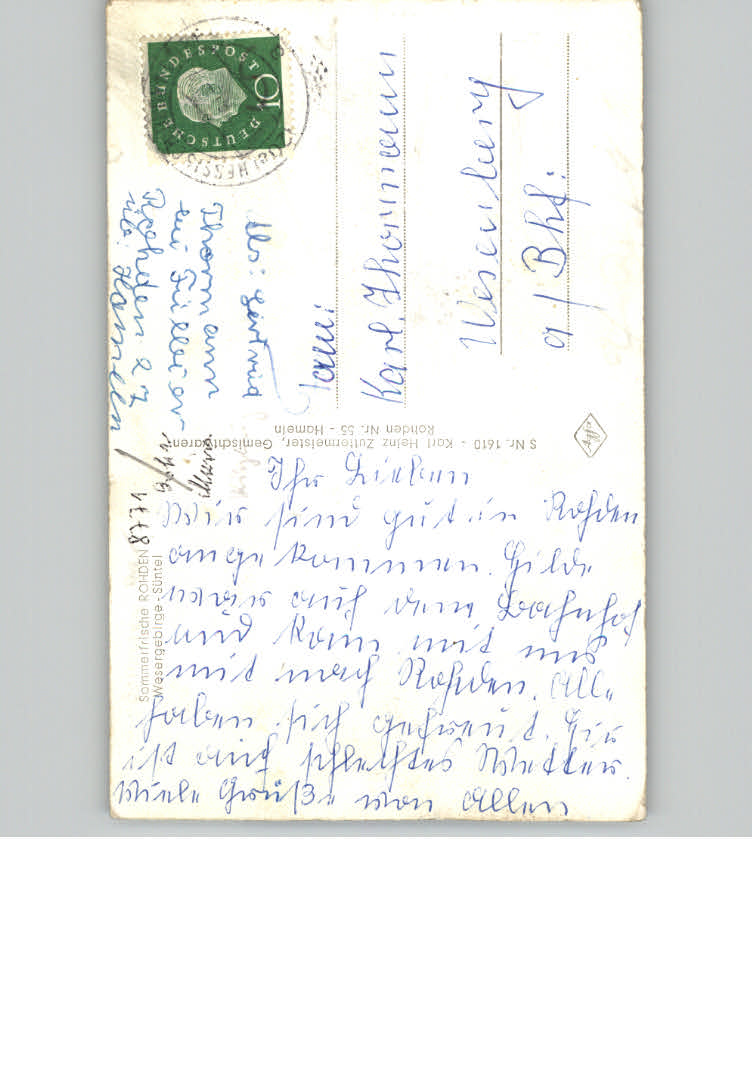 Ihr Lieben
Wir sind gut in Rohden
angekommen. Hilde
war auch vom Bahnhof
und kam mit uns
mit nach Rohden. Alle
haben sich gefreut. Hier
ist auch schlechtes Wetter.
Viele Grüße von Allen
Sommerfrische ROHDEN
Wesergebirge - Süntel
S Nr. 1610 - Karl Heinz Zutlermeister, Gemischtwaren
Rohden Nr. 55 - Hameln
DEUTSCHE BUNDESPOST
10
Abs: Gertrud
Thormann
bei Füller
Rohden 27
üb. Hameln
Fam:
Karl. Thormann
Weserberg
a / Bhf: